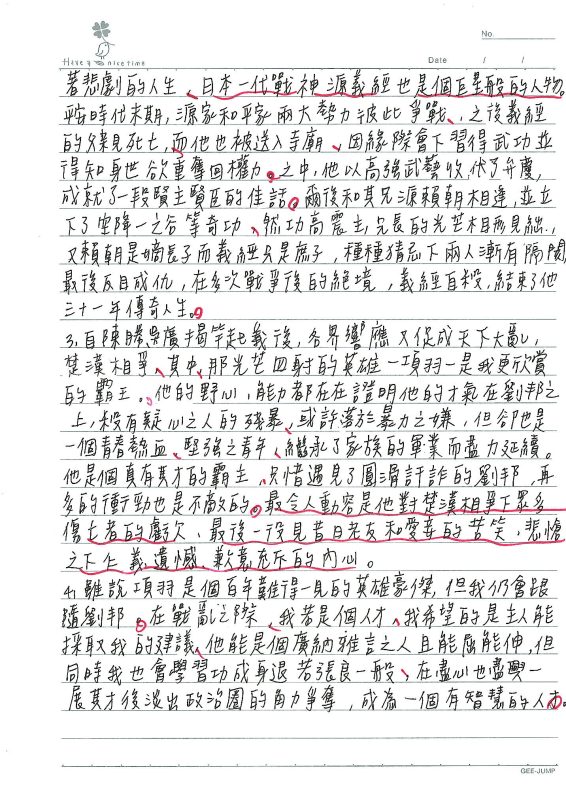 Have a nice time
No.
Date / /
著悲劇的人生、日本一代戰神源義經也是個巨星般的人物。
平安時代末期,源家和平家兩大勢力彼此爭戰、之後義經
的父親死亡,而他也被送入寺廟、因緣際會下習得武功並
得知身世欲重奪回權力。之中,他以高強武藝收伏了弁慶,
成就了一段賢主賢臣的佳話。爾後和其兄源賴朝相逢,並立
下了空降一之谷等奇功、然功高震主,兄長的光芒相形見絀.,
又賴朝是嫡長子而義經只是庶子,種種猜忌下兩人漸有隔閡,
最後反目成仇,在多次戰爭後的絕境,義經自殺,結束了他
三十一年傳奇人生。
3.自陳勝吳廣揭竿起義後,各界響應又促成天下大亂,
楚漢相爭、其中,那光芒四射的英雄—項羽—是我更欣賞
的霸王。他的野心,能力都在在證明他的才氣在劉邦之
上,殺有疑心之人的殘暴、或許落於暴力之嫌,但卻也是
一個青春熱血、堅強之青年、繼承了家族的軍業而盡力延續。
他是個真有其才的霸主、只惜遇見了圓滑訐詐的劉邦,再
多的衝勁也是不敵的。最令人動容是他對楚漢相爭下眾多
傷亡者的虧欠、最後一役見昔日老友和愛妾的苦笑,悲愴
之下仁義、遺憾、歉意充斥的內心。
4.雖說項羽是個百年難得一見的英雄豪傑,但我仍會跟
隨劉邦。在戰亂之際、我若是個人才、我希望的是主人能
採取我的建議、他能是個廣納雅言之人且能屈能伸,但
同時我也會學習功成身退若張良一般、在盡心也盡興一
展其才後淡出政治圈的角力爭奪,成為一個有智慧的人才。
GEE-JUMP